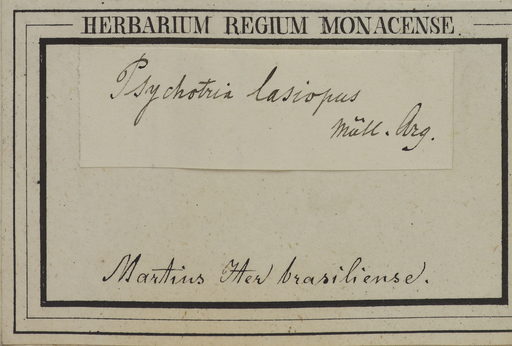 HERBARIUM REGIUM MONACENSE.
Psychotria lasiopus
Müll. Arg.
Martius Iter brasiliense.